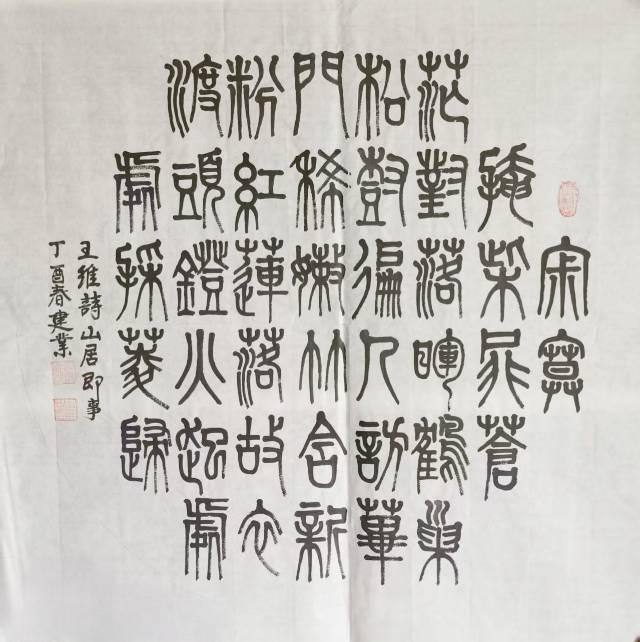 寂寞
掩柴扉蒼
茫對落暉鶴巢
松樹徧人訪蓽
門稀嫩竹含新
粉紅蓮落故衣
渡頭鐙火起處
處採菱歸
王維詩山居即事
丁酉春建業